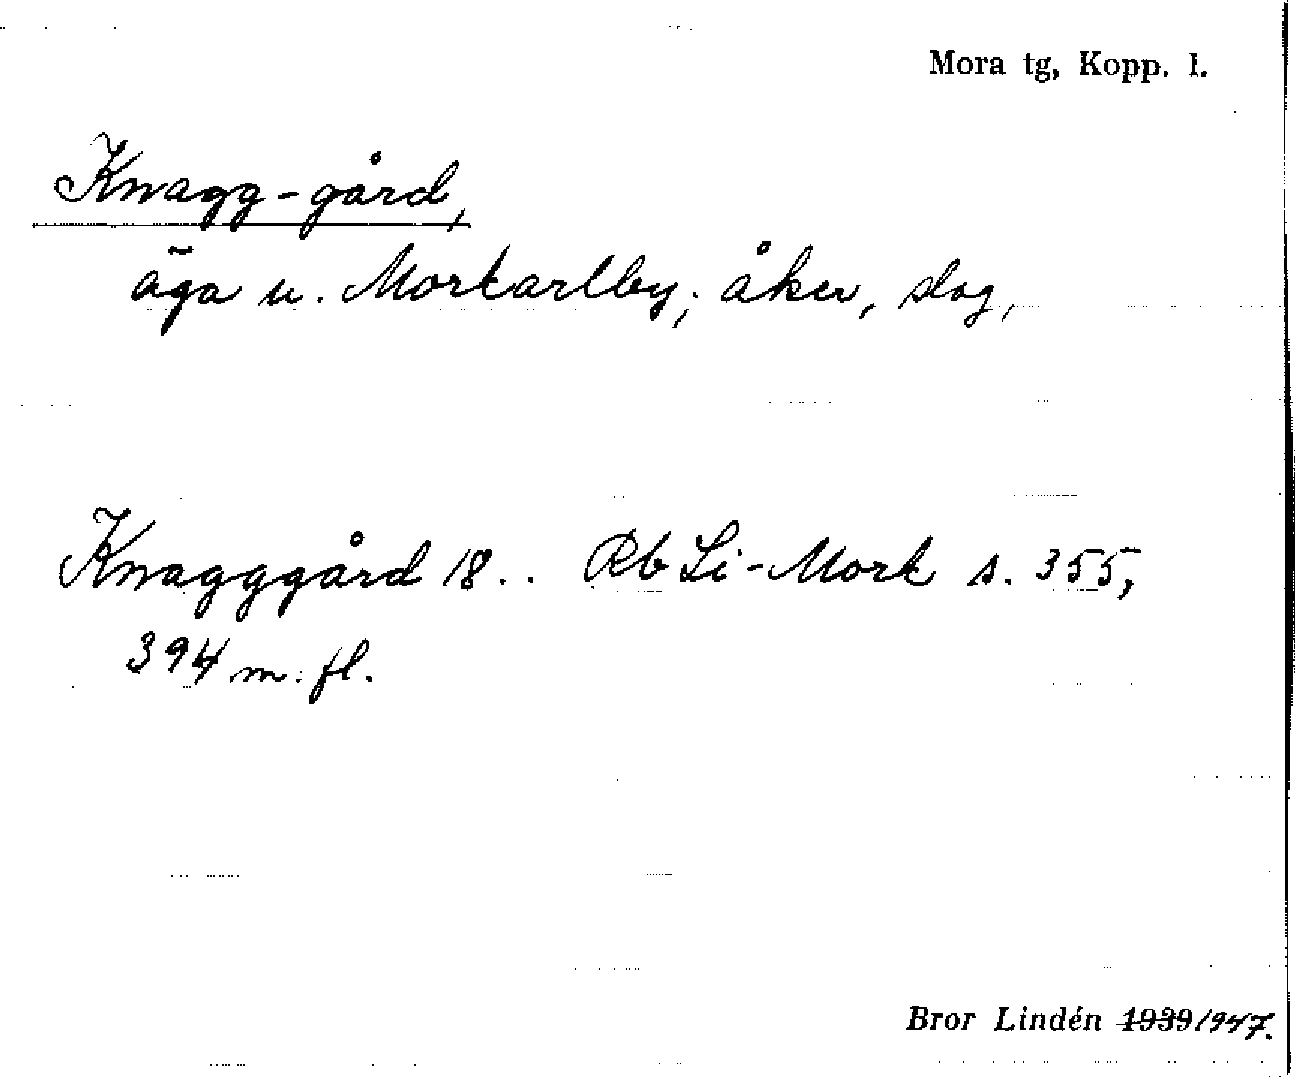 Mora tg, Kopp. l.
Knagg-gård,
äga u. Morkarlby; åker, slog,
Knagggård 18.. Rb Li-Mork s. 355,
394 m. fl.
Bror Lindén 1939 1947.